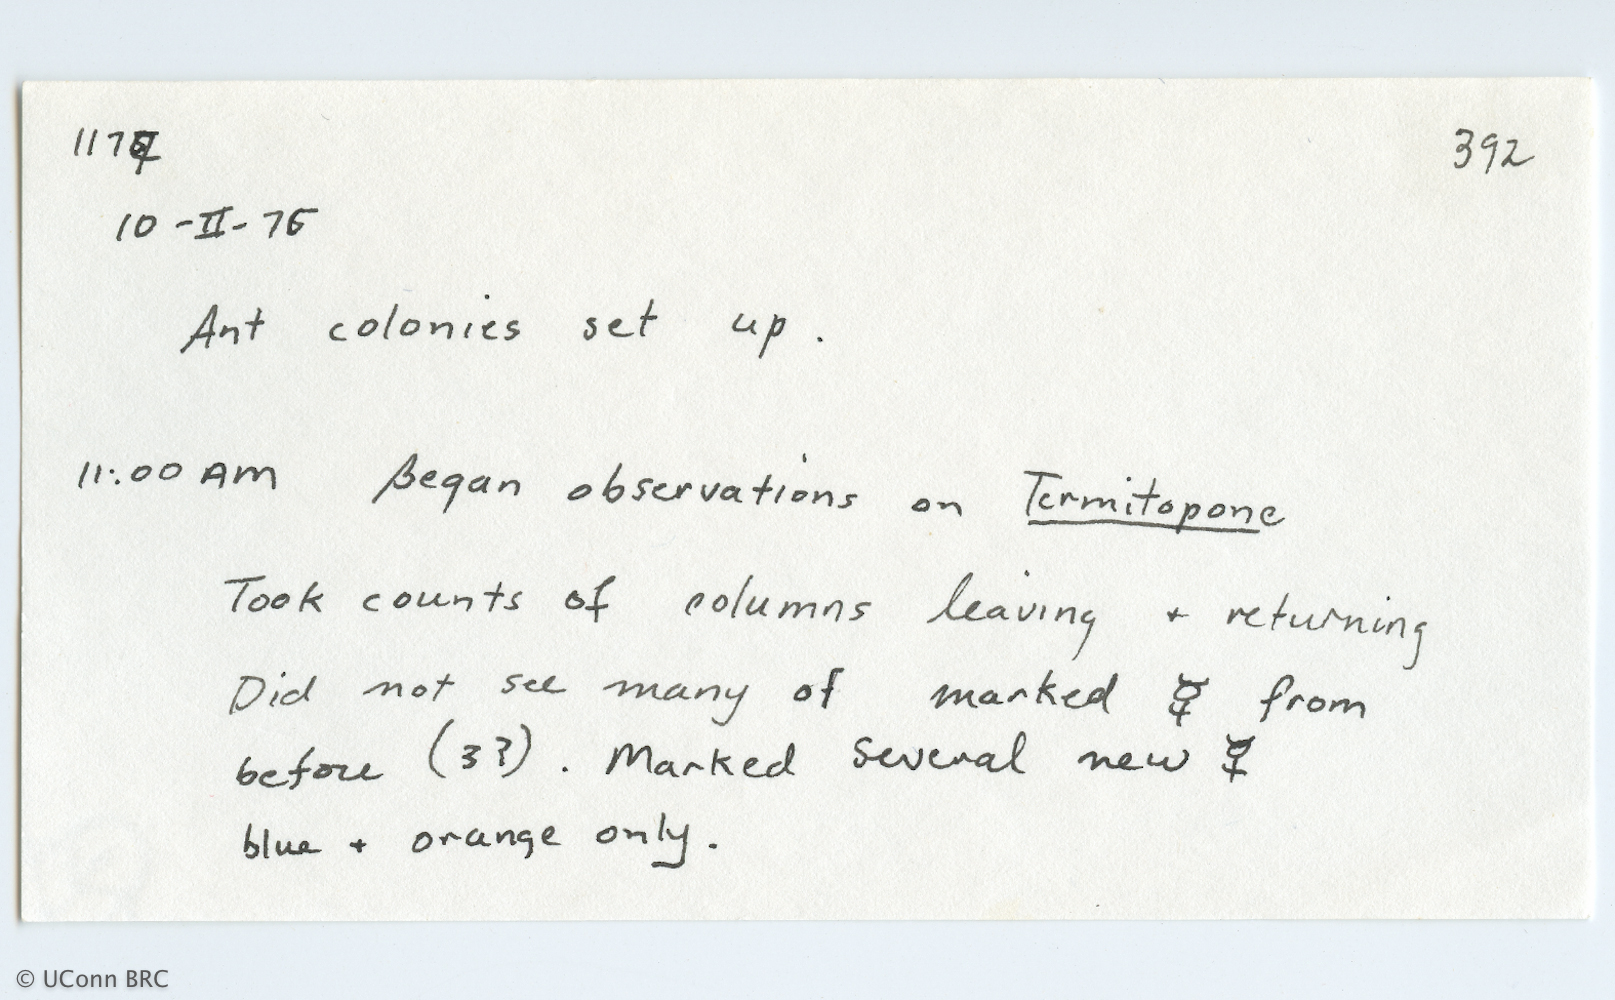 392
10-II-76
Ant colonies set up.
11:00 AM Began observations on Termitopone
Took counts of columns leaving + returning
Did not see many of marked ☿ from
before (3?). Marked several new ☿
blue + orange only.
© UConn BRC